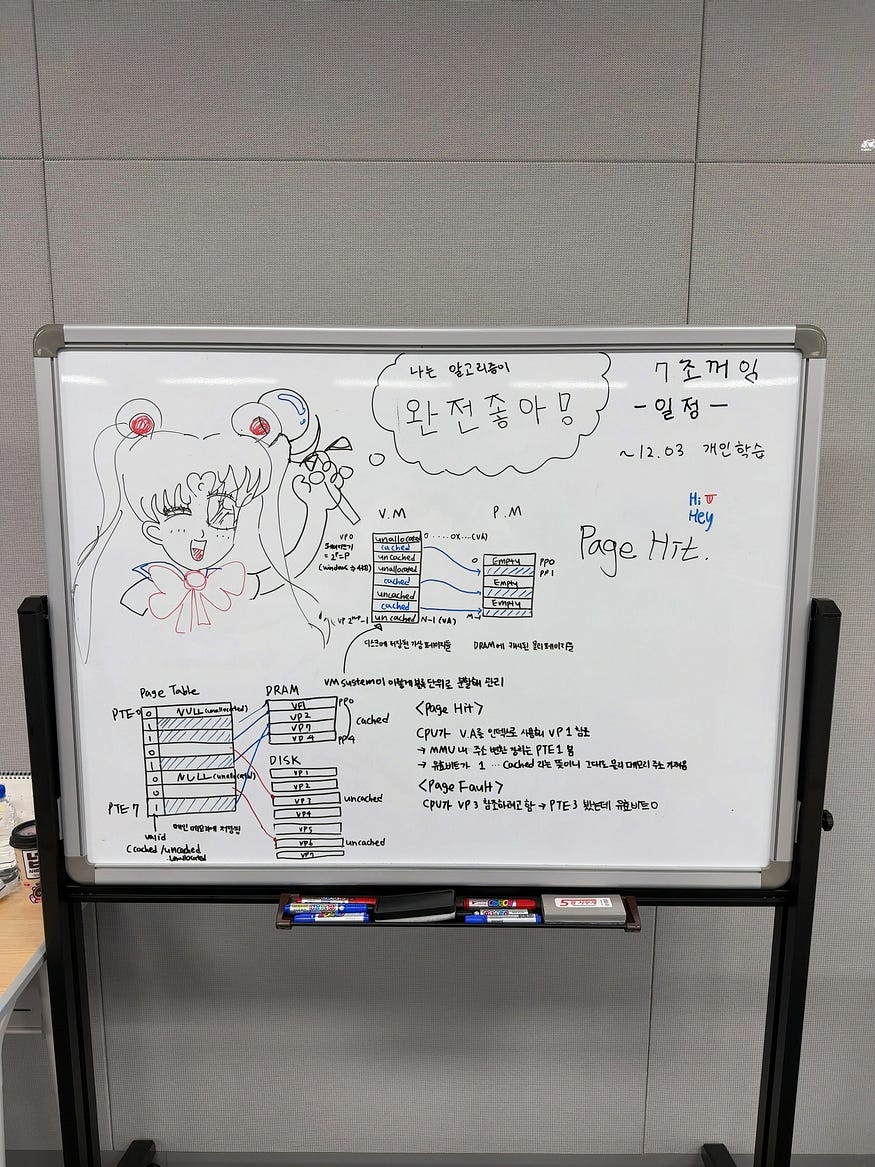 나는 알고리즘이
완전좋아!
7조꺼임
-일정-
~12.03 개인학습
Hi
Hey
Page Hit.
V.M
P.M
VP0
= 2^P = P
unallocated
cached
uncached
unallocated
cached
uncached
cached
uncached
0 .... 0X... (VA)
VP 2
N-1 (VA)
0
Empty
Empty
Empty
PP0
PP1
M-1
디스크에 저장된 가상 페이지들
DRAM에 캐시된 물리페이지들
VM system이 이렇게 블록단위로 분할해 관리
Page Table
PTE 0
0
1
1
0
1
0
0
1
NULL (unallocated)
NULL (unallocated)
PTE 7
valid
(cached/uncached
unallocated
메인 메모리에 저장됨
DRAM
VP1
VP2
VP7
VP4
PP0
cached
DISK
VP1
VP2
VP3
VP4
VP5
VP6
VP7
uncached
uncached
<Page Hit>
CPU가 V.A를 인덱스로 사용해 VP1 참조
→ MMU 내 주소 변환 장치는 PTE1 봄
→ 유효비트가 1 ... Cached 라는 뜻이니 그대로 물리 메모리 주소 가져옴
<Page Fault>
CPU가 VP3 참조하려고함 → PTE3 봤는데 유효비트 0